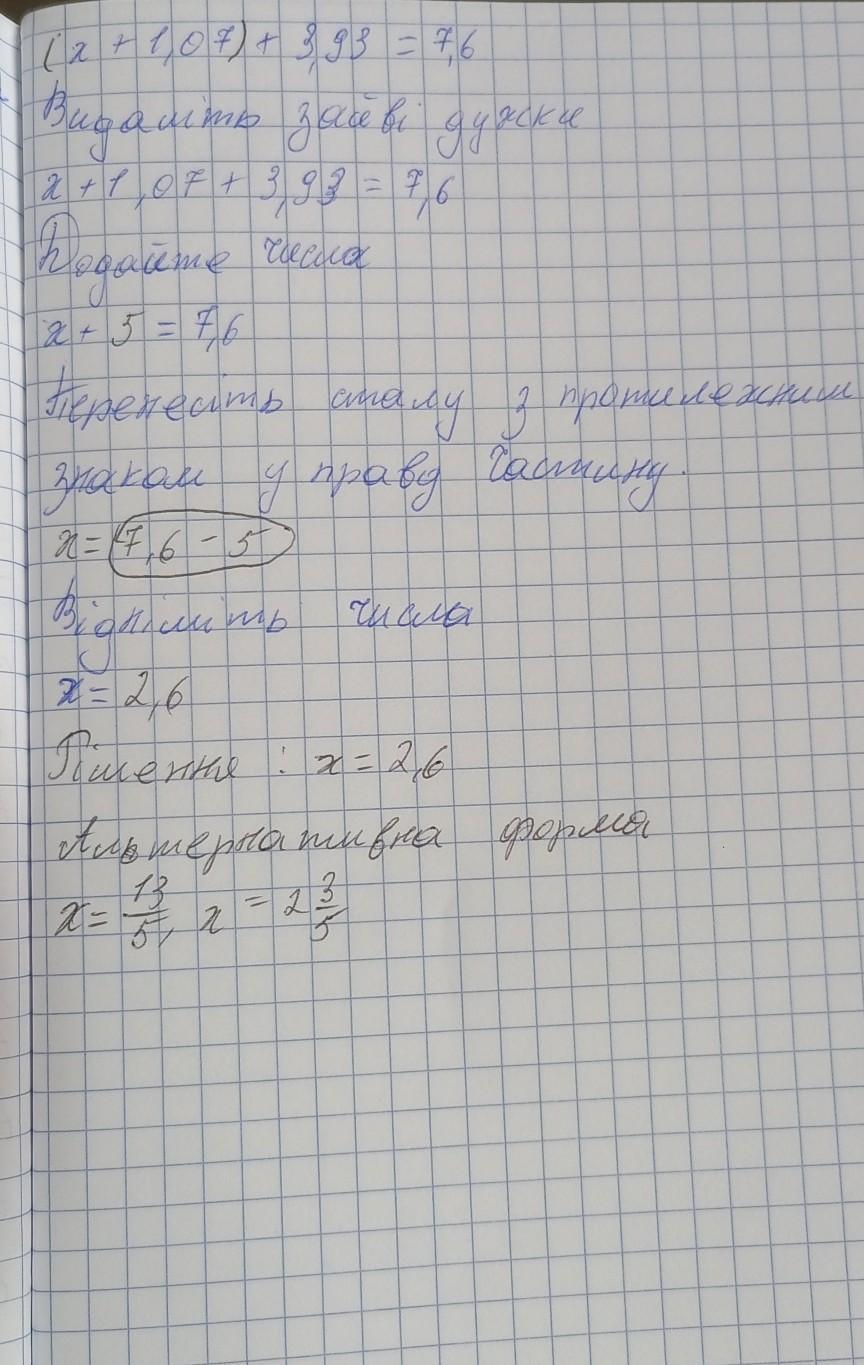 (x + 1,07) + 3,93 = 7,6
Видаліть зайві дужки
x + 1,07 + 3,93 = 7,6
Додайте числа
x + 5 = 7,6
Перенесіть сталу з протилежним
знаком у праву частину.
x = 7,6 - 5
Відніміть числа
x = 2,6
Рішення : x = 2,6
Альтернативна форма
x = 13/5, x = 2 3/5